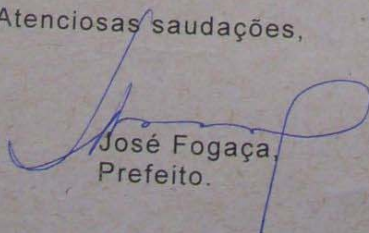 Atenciosas saudações,
José Fogaça,
Prefeito.